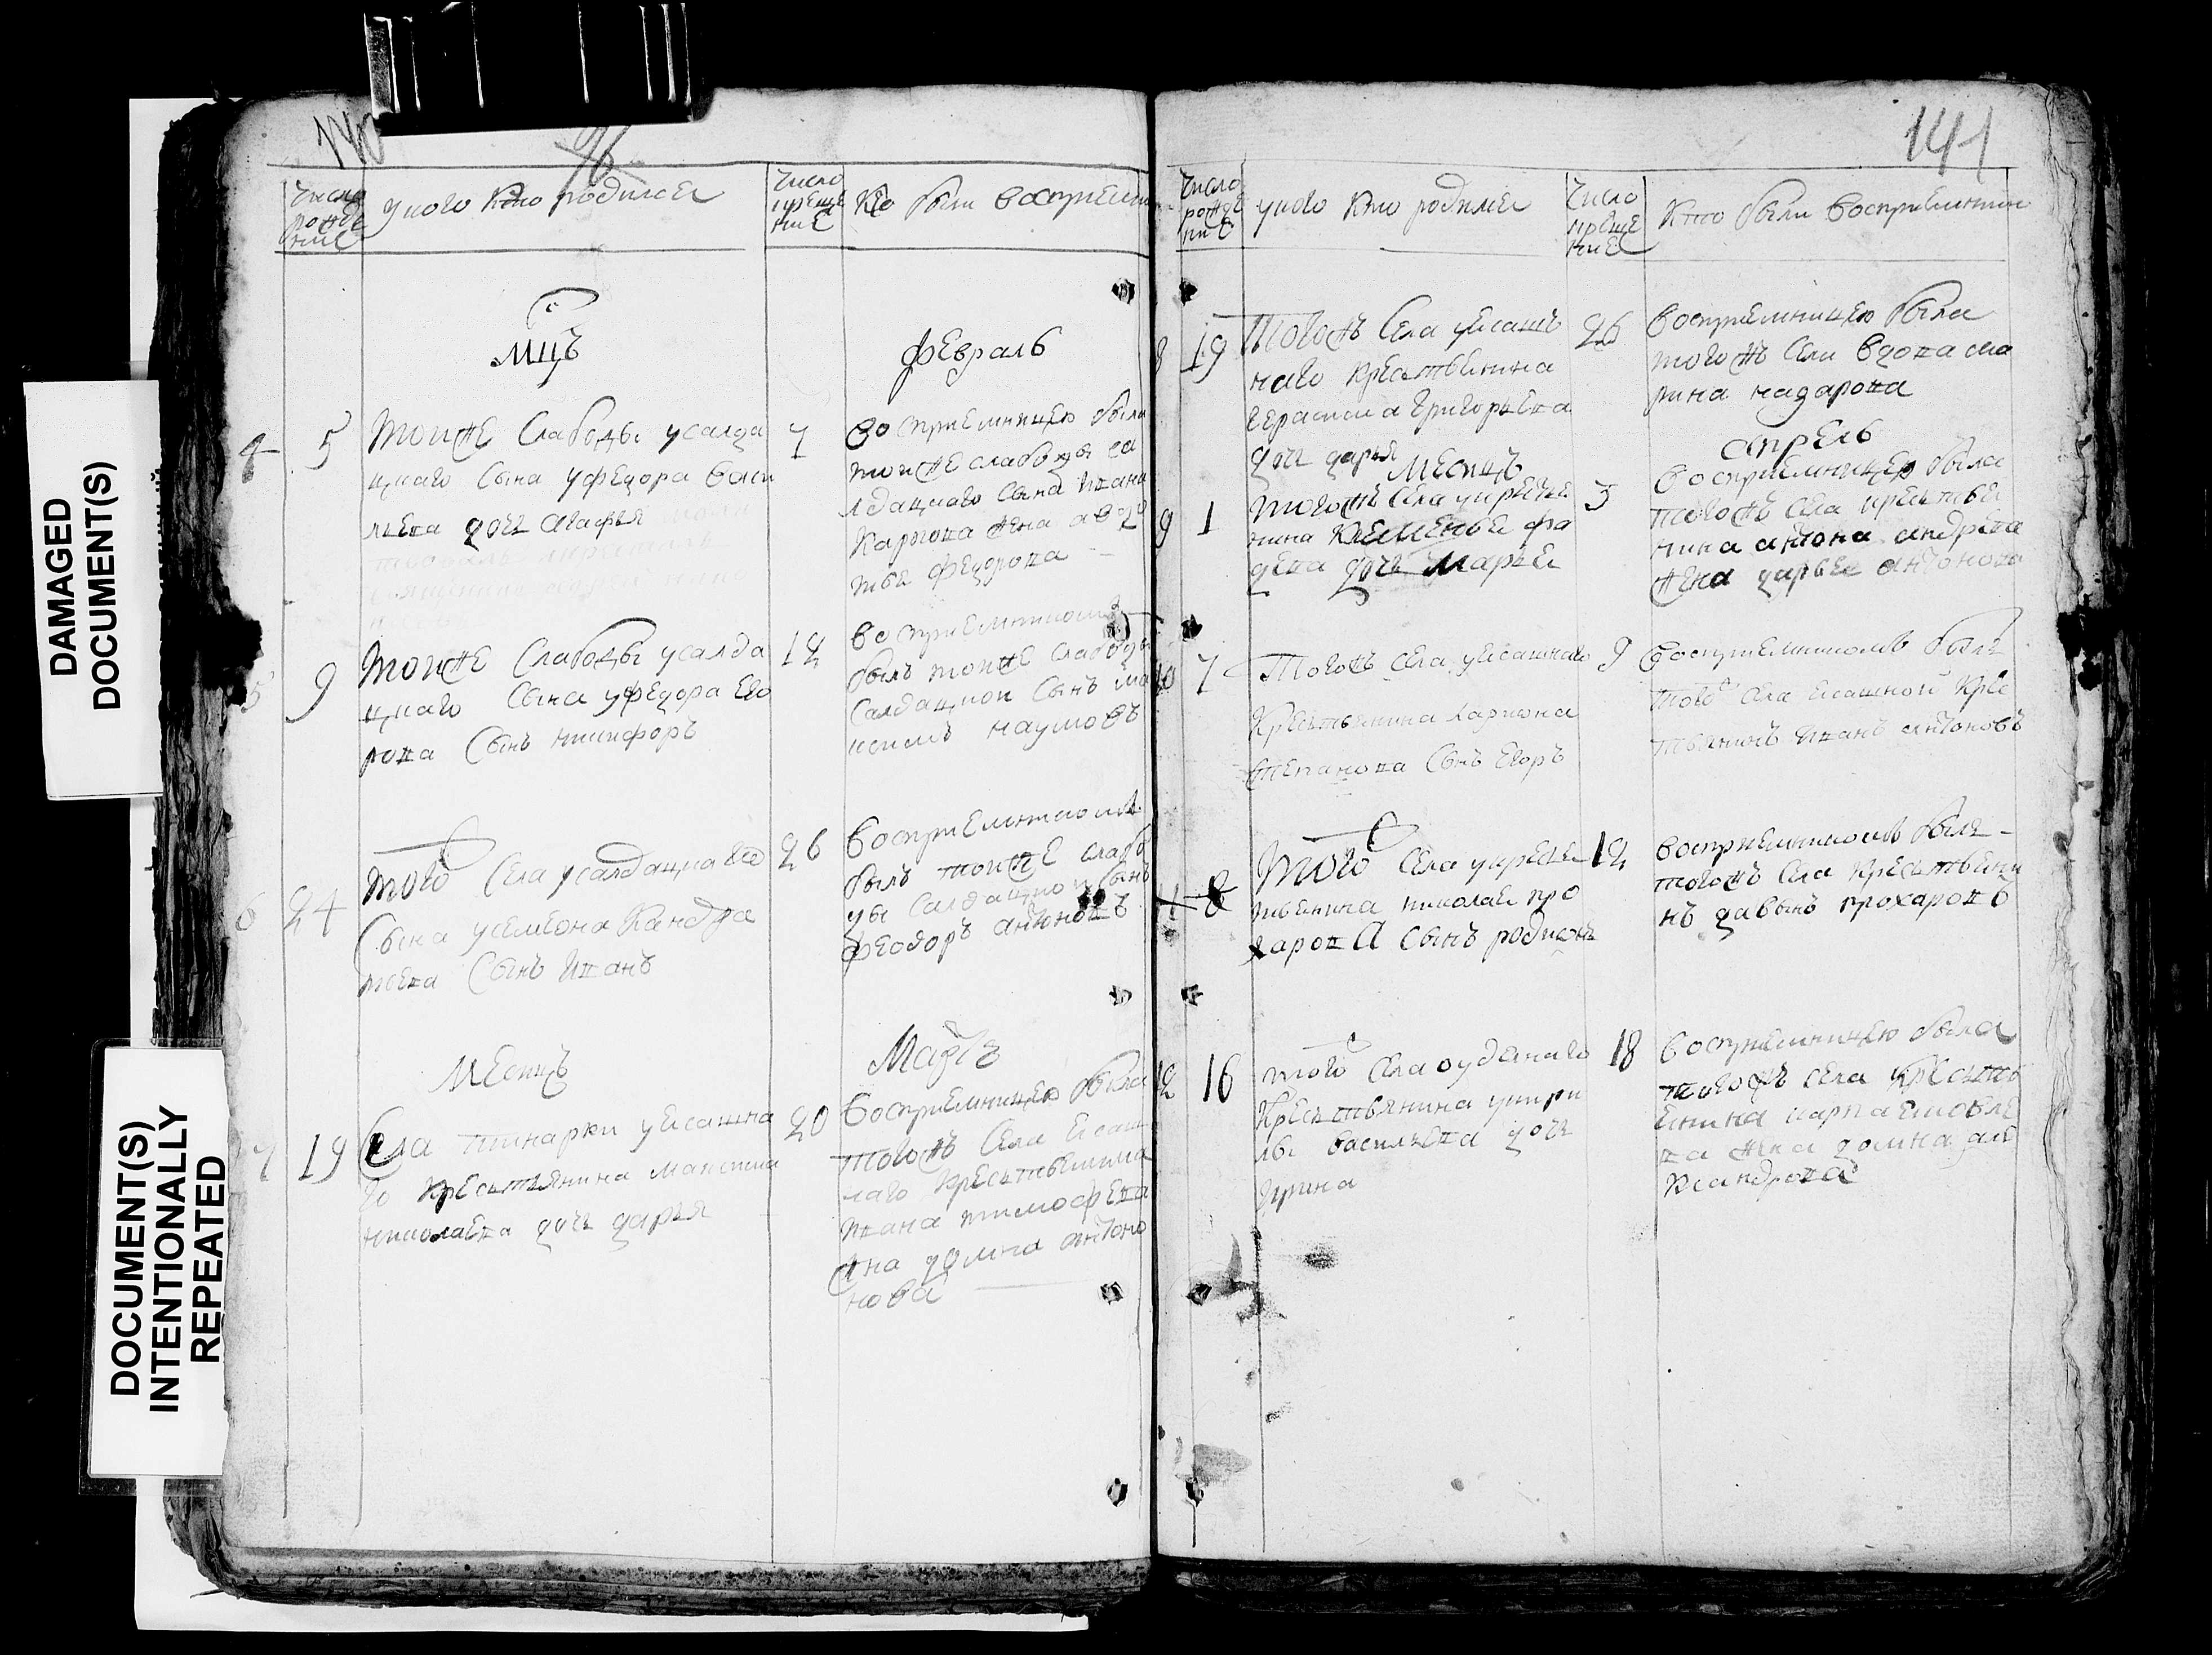 DAMAGED
DOCUMENT(S)
DOCUMENT(S)
INTENTIONALLY
REPEATED
140
96
Число
рожде
ние
у кого кто родился
Число
креще
ние
Кто были восприем
мцъ
февраль
4
5
тоиже слабоды усалда
цкаго сына уфедора васи
льева дочь агафья
7
восприемницею была
тоиже слабоды са
лдацкаго сына ивана
жена авдо
тья федорова
5
9
тоиже слабоды усалда
цкаго сына уфедора его
рова сынъ никифоръ
12
восприемникомъ
былъ тоиже слабоды
салдацкои сынъ ма
ксимъ наумовъ
6
24
того села усалдацкаго
сына усемиона кандра
тьева сынъ иванъ
26
восприемникомъ
былъ тоиже слабо
ды салдацкои сынъ
феодоръ антоновъ
месицъ
мартъ
7
19
села уясашна
го крестьянина максима
николаева дочь дарья
20
восприемницею была
тогожъ села ясаш
наго крестьянина
ивана тимофева
жена домна антоно
нова
141
Число
рожде
ние
у кого кто родился
Число
креще
ние
Кто были восприемники
8
19
тогожъ села уясашъ
наго крестьянина
герасима григорьева
дочь дарья
26
восприемницею была
тогожъ села вдова ма
рина назарова
месицъ
апрель
9
1
тогожъ села укрестья
нина
деева дочь марья
3
восприемницею была
тогожъ села крестья
нина антона андреева
жена дарья антонова
10
7
тогожъ села уясашнаго
крестьянина лариона
степанова сынъ егоръ
9
восприемникомъ былъ
того села ясашной кре
стьянинъ иванъ антоновъ
11
8
того села укресть
тьянина николая про
харова сынъ родионъ
12
восприемникомъ былъ
тогожъ села крестьяни
нъ давыдъ прохаровъ
12
16
того села
крестьянина укири
лы васильева дочь
ирина
18
восприемницею была
тогожъ села крестья
янина карпа
ва жена домна але
ксандрова